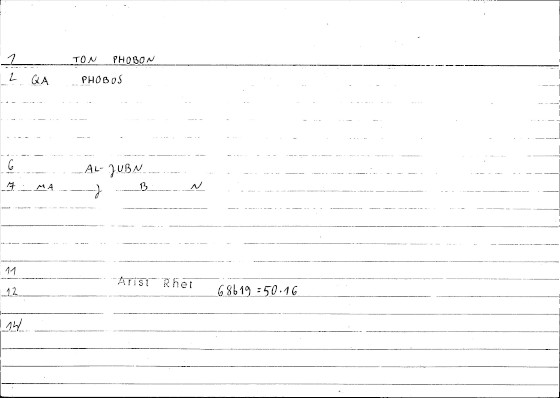 1 TON PHOBON
2 QA PHOBOS
6 AL-JUBN
7 MA J B N
11
Arist Rhet
12 68b19 = 50.16
14